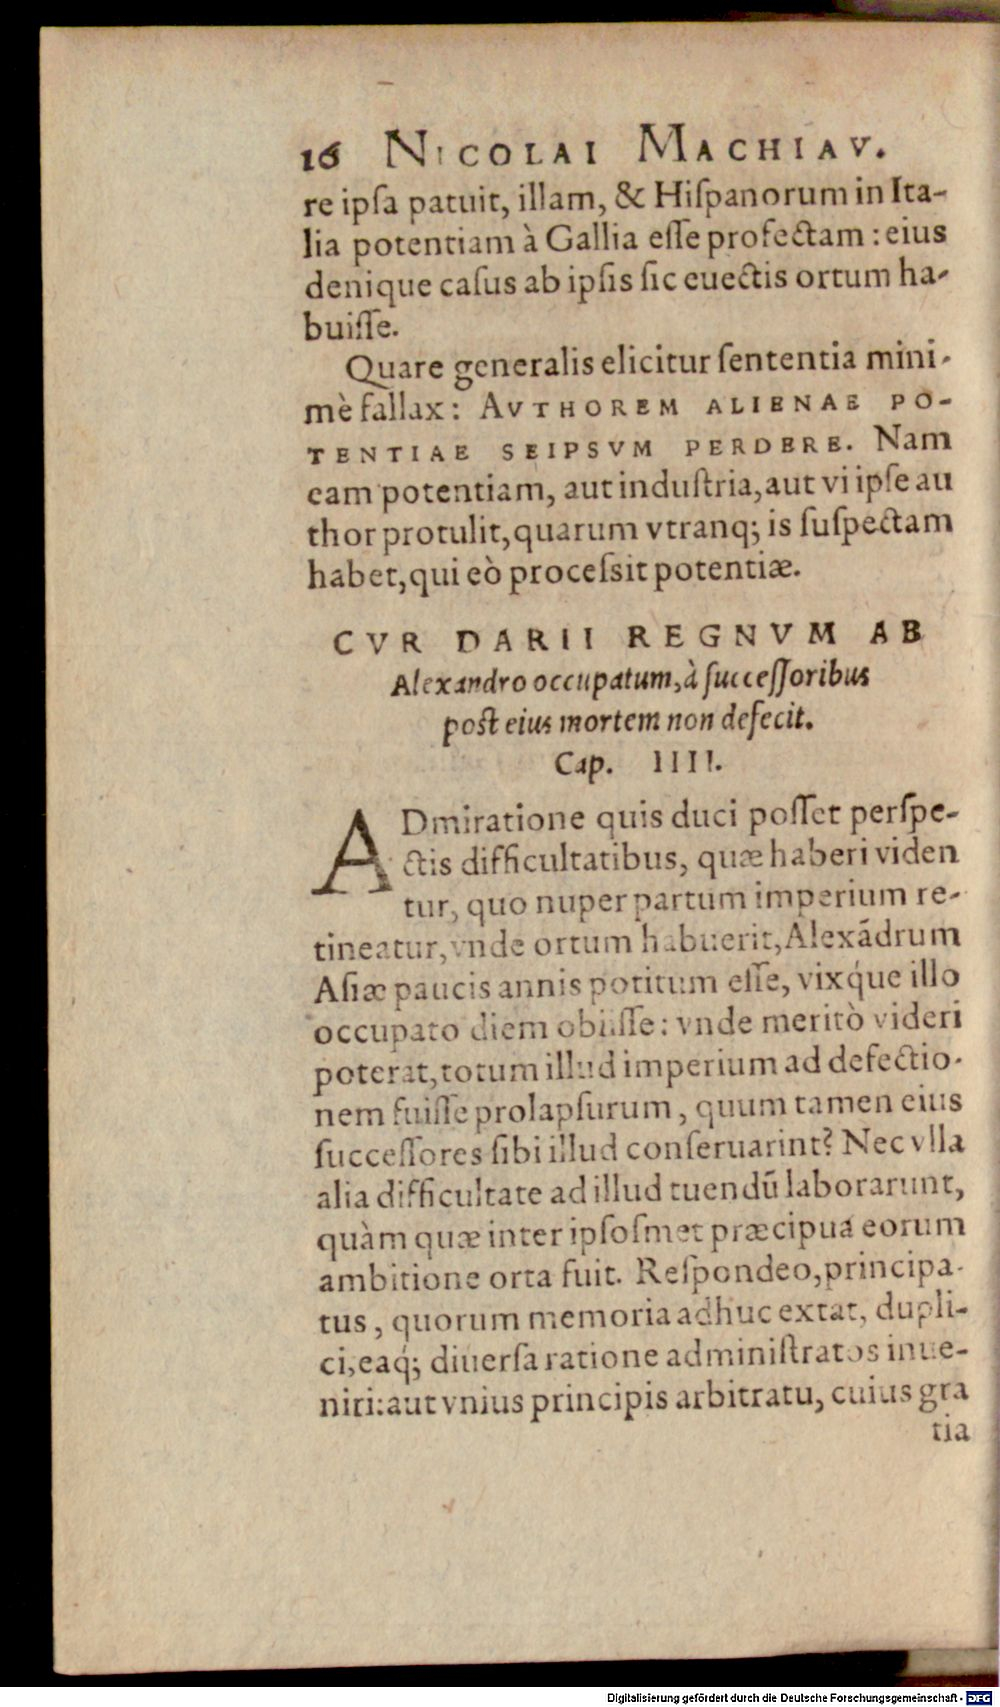 16 NICOLAI MACHIAV.
re ipſa patuit, illam, & Hiſpanorum in Ita-
lia potentiam à Gallia eſſe profectam : eius
denique caſus ab ipſis ſic euectis ortum ha-
buiſſe.
Quare generalis elicitur ſententia mini-
mè fallax: AVTHOREM ALIENAE PO-
TENTIAE SEIPSVM PERDERE. Nam
eam potentiam, aut induſtria, aut vi ipſe au
thor protulit, quarum vtranq; is ſuſpectam
habet, qui eò proceſsit potentiæ.
CVR DARII REGNVM AB
Alexandro occupatum, à ſucceſſoribus
post eius mortem non defecit.
Cap. IIII.
ADmiratione quis duci poſſet perſpe-
ctis difficultatibus, quæ haberi viden
tur, quo nuper partum imperium re-
tineatur, vnde ortum habuerit, Alexādrum
Aſiæ paucis annis potitum eſſe, vixq́ue illo
occupato diem obiiſſe: vnde meritò videri
poterat, totum illud imperium ad defectio-
nem fuiſſe prolapſurum, quum tamen eius
ſucceſſores ſibi illud conſeruarint? Nec vlla
alia difficultate ad illud tuendū laborarunt,
quàm quæ inter ipſoſmet præcipua eorum
ambitione orta fuit. Reſpondeo, principa-
tus, quorum memoria adhuc extat, dupli-
ci, eaq́; diuerſa ratione adminiſtratos inue-
niri: aut vnius principis arbitratu, cuius gra
tia
Digitalisierung gefördert durch die Deutsche Forschungsgemeinschaft - DFG